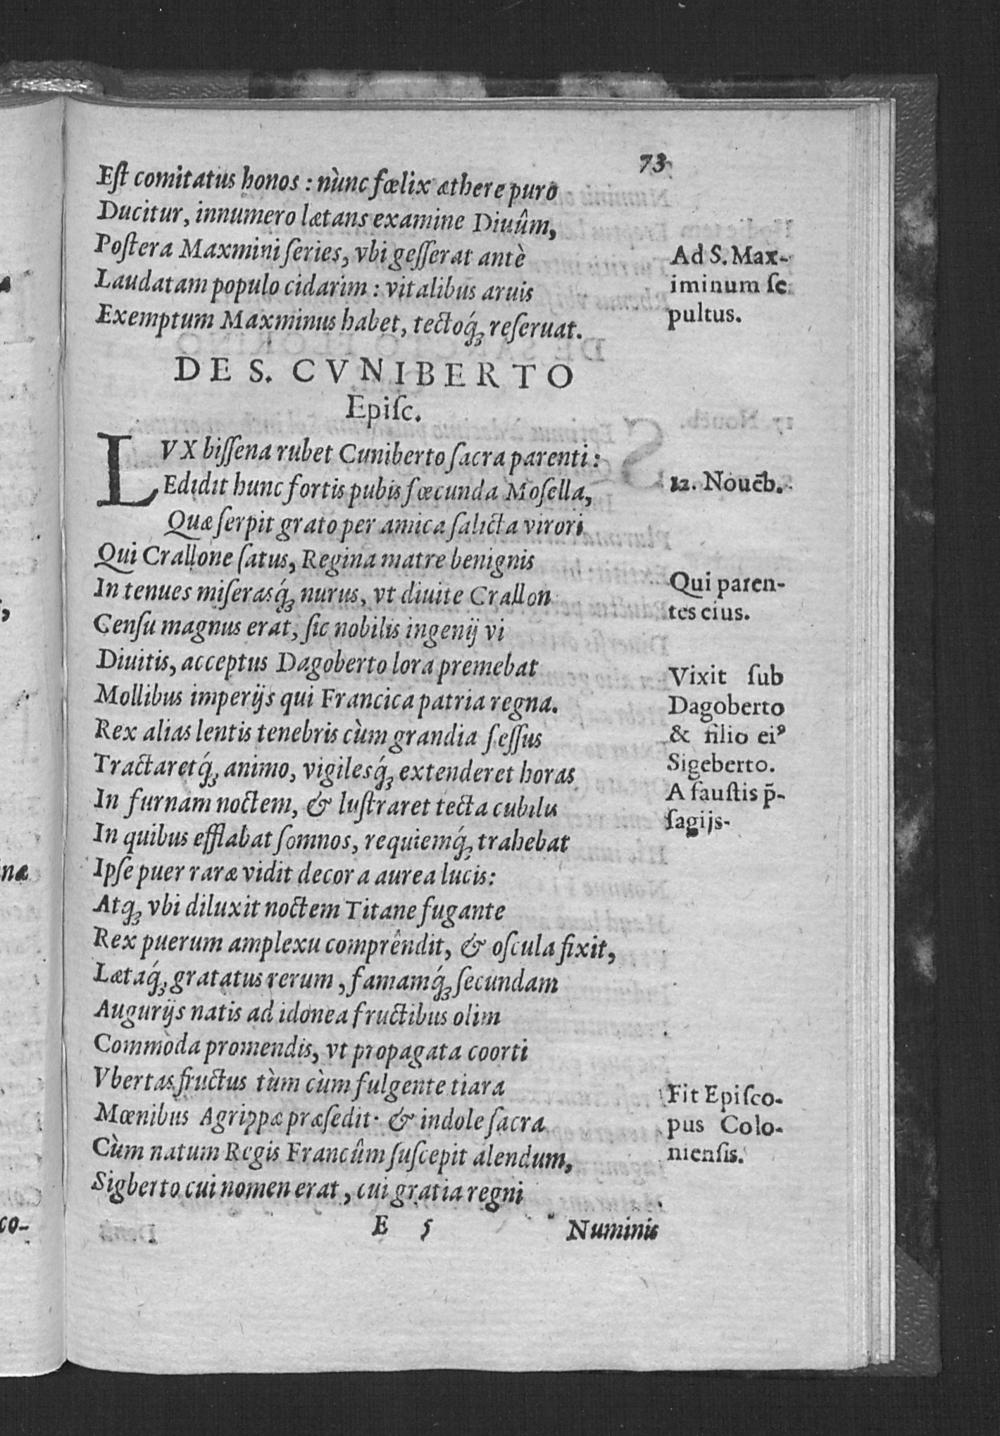 73
Est comitatus honos : nùnc fœlix æthere puro
Ducitur, innumero lætans examine Diuûm,
Postera Maxmini series, vbi gesserat antè
Laudatam populo cidarim : vitalibus aruis
Exemptum Maxminus habet, tectoq́ꝫ reseruat.
Ad S. Max-
iminum se
pultus.
DE S. CVNIBERTO
Episc.
LVX bissena rubet Cuniberto sacra parenti :
Edidit hunc fortis pubis fœcunda Mosella,
Quæ serpit grato per amica salicta virori
Qui Crallone satus, Regina matre benignis
In tenues miserasq́ꝫ nurus, vt diuite Crallon
Censu magnus erat, sic nobilis ingenij vi
Diuitis, acceptus Dagoberto lora premebat
Mollibus imperijs qui Francica patria regna.
Rex alias lentis tenebris cùm grandia sessus
Tractaretq́ꝫ animo, vigilesq́ꝫ extenderet horas
In furnam noctem, & lustraret tecta cubilis
In quibus efflabat somnos, requiemq́ꝫ trahebat
Ipse puer raræ vidit decora aurea lucis:
Atqꝫ vbi diluxit noctem Titane fugante
Rex puerum amplexu comprêndit, & oscula fixit,
Lætaq́ꝫ gratatus rerum, famamq́ꝫ secundam
Augurijs natis ad idonea fructibus olim
Commòda promendis, vt propagata coorti
Vbertas fructus tùm cùm fulgente tiara
Mœnibus Agrippæ præsedit· & indole sacra
Cùm natum Regis Francûm suscepit alendum,
Sigberto cui nomen erat, cui gratia regni
12. Nouēb.
Qui paren-
tes eius.
Vixit sub
Dagoberto
& filio eiꝰ
Sigeberto.
A faustis p̄-
sagijs-
Fit Episco-
pus Colo-
niensis.
E 5
Numinis